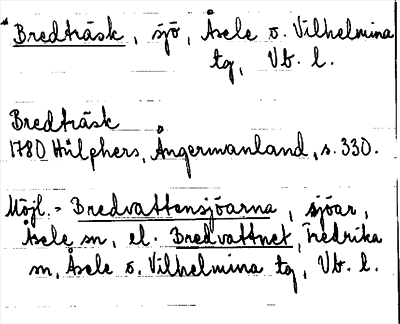 *Bredträsk, sjö, Åsele o. Vilhelmina
tg, Vb. l.
Bredträsk
1780 Hülphers, Ångermanland, s. 330.
Möjl. = Bredvattensjöarna, sjöar,
Åsele sn, el. Bredvattnet, Fredrika
sn, Åsele o. Vilhelmina tg, Vb. l.